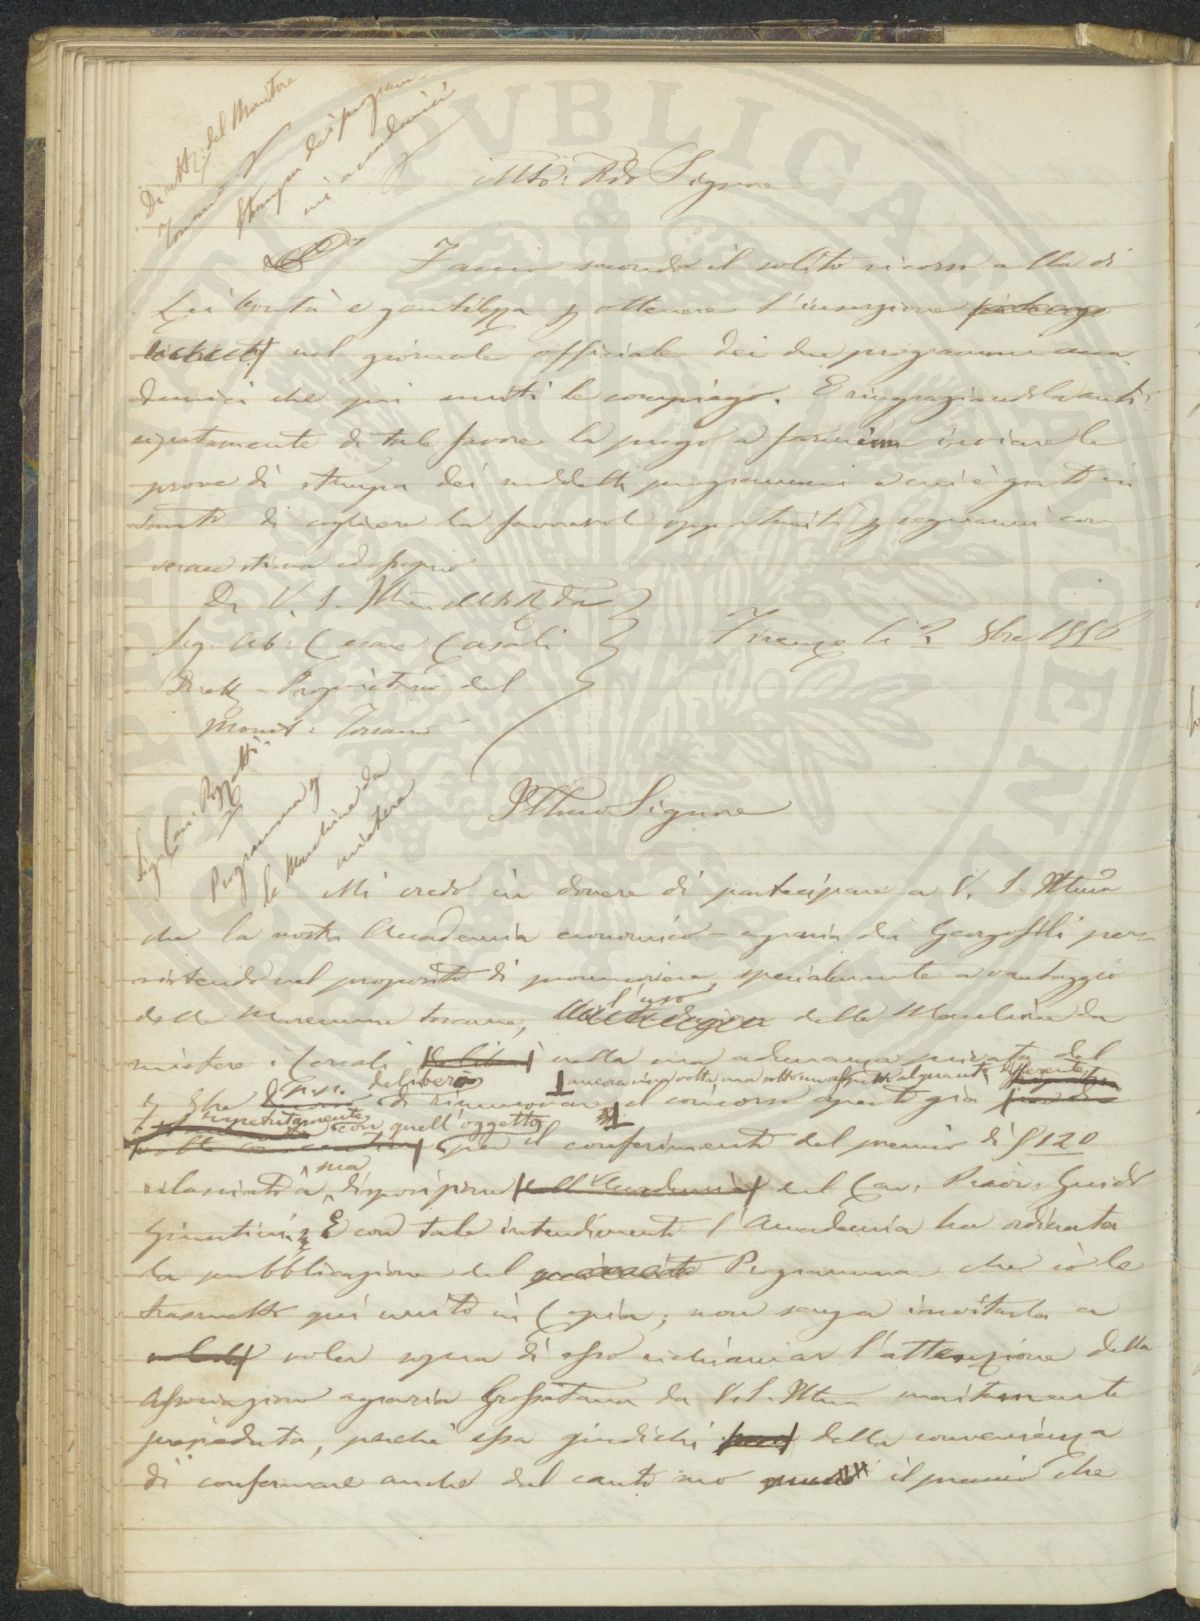 Dirett. del Monitore
Toscano
Stampa dei program-
mi accademici
Molto: Rdo Signore
Faccio secondo il solito ricorso alla di
Lei bontà e gentilezza p ottenere l'inserzione
nel giornale officiale dei due programmi acca-
demici che qui uniti le compiego. E ringraziandola anti-
cipatamente di tal favore la prego a farmi inviare le
prove di stampa dei suddetti programmi e mi è grato in
tanto di cogliere la favorevol opportunità p segnarmi con
verace stima ed ossequio
Di V. S. Illma M R Da
Sig. Ab: Cesare Casali
Dirett. Proprietario del
Monit: Toscano
Firenze li 2 8bre 1856
Sig. Cav:
Programma p
le Macchine da
mietere
Illmo Signore
Mi credo in dovere di partecipare a V. S. Illma
che la nostra Accademia economico-agraria dei Georgofili per-
sistendo nel proposito di promuovere, specialmente a vantaggio
della Maremma toscana, l'uso delle Macchine da
mietere i Cereali nella sua adunanza privata del
deliberò ancora una volta, ma sotto un aspetto alquanto
di rinnovare il concorso aperto già
ripetutamente con quell'oggetto
per il conferimento del premio di £ 120
rilasciato a sua disposizione dal Cav. Prior. Guido
Giuntini. E con tale intendimento l'Accademia ha ordinata
la pubblicazione del Programma che io le
trasmetto qui unito in Copia, non senza invitarla a
voler sopra di esso richiamar l'attenzione della
Associazione agraria Grossetana da V. S. Illma meritamente
presieduta, perchè essa giudichi della convenienza
di confermare anche dal canto suo il premio che